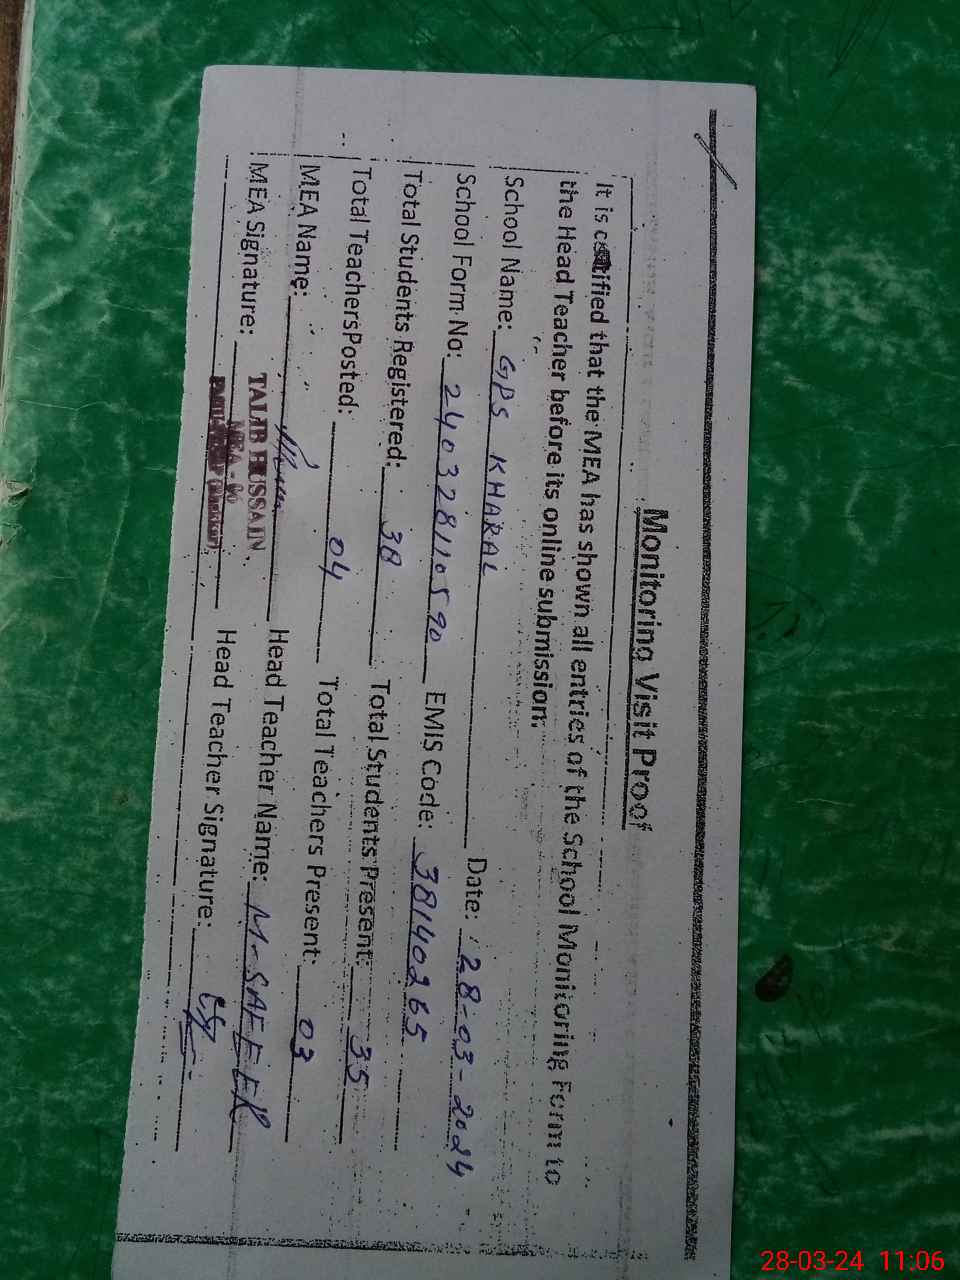 Monitoring Visit Proof
It is certified that the MEA has shown all entries of the School Monitoring Form to
the Head Teacher before its online submission.
School Name: GPS KHARAL Date: 28-03-2024
School Form No: 240328110590 EMIS Code: 38140265
Total Students Registered: 38 Total Students Present: 35
Total Teachers Posted: 04 Total Teachers Present: 03
MEA Name: Head Teacher Name: M-SAFEER
TALIB HUSSAIN
MEA Signature: Head Teacher Signature:
MEA-
28-03-24 11:06